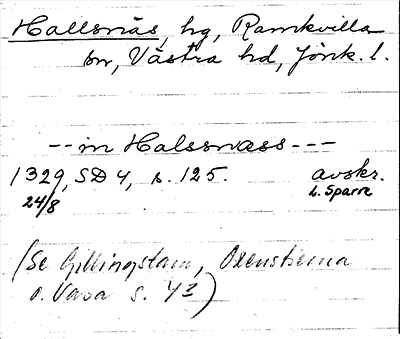 Hallsnäs, hg, Ramkvilla
sn, Västra hd, Jönk. l.
-- in Halssnæss ---
1329, SD 4, s. 125. avskr.
24/8 L. Sparre
(Se Gillingstam, Oxenstierna
o. Vasa s. 43)